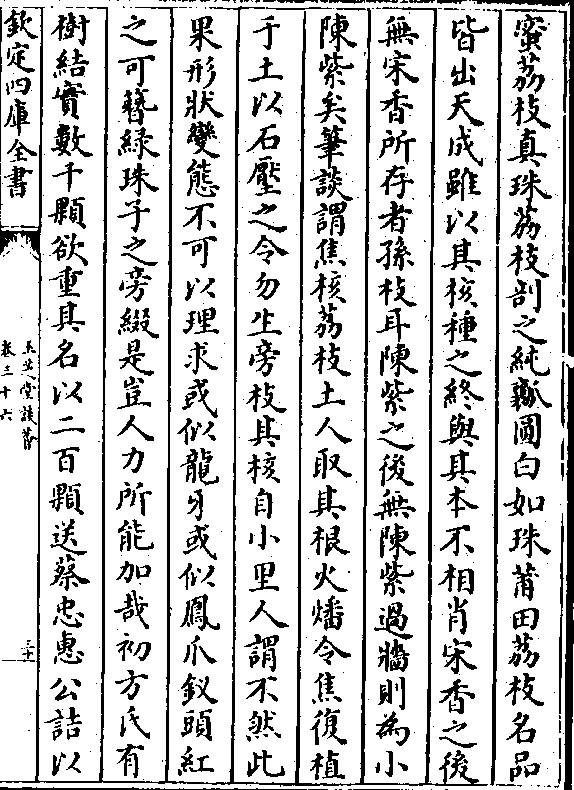 蜜荔枝真珠荔枝剖之純瓤圓白如珠莆田荔枝名品
皆出天成雖以其核種之終與其本不相肖宋香之後
無宋香所存者孫枝耳陳紫之後無陳紫過牆則為小
陳紫矣筆談謂焦核荔枝土人取其根火燔令焦復植
于土以石壓之令勿生旁枝其核自小里人謂不然此
果形狀變態不可以理求或似龍牙或似鳳爪釵頭紅
之可簪緑珠子之旁綴是豈人力所能加哉初方氏有
樹結實數千顆欲重其名以二百顆送蔡忠惠公詰以
欽定四庫全書
卷三十六